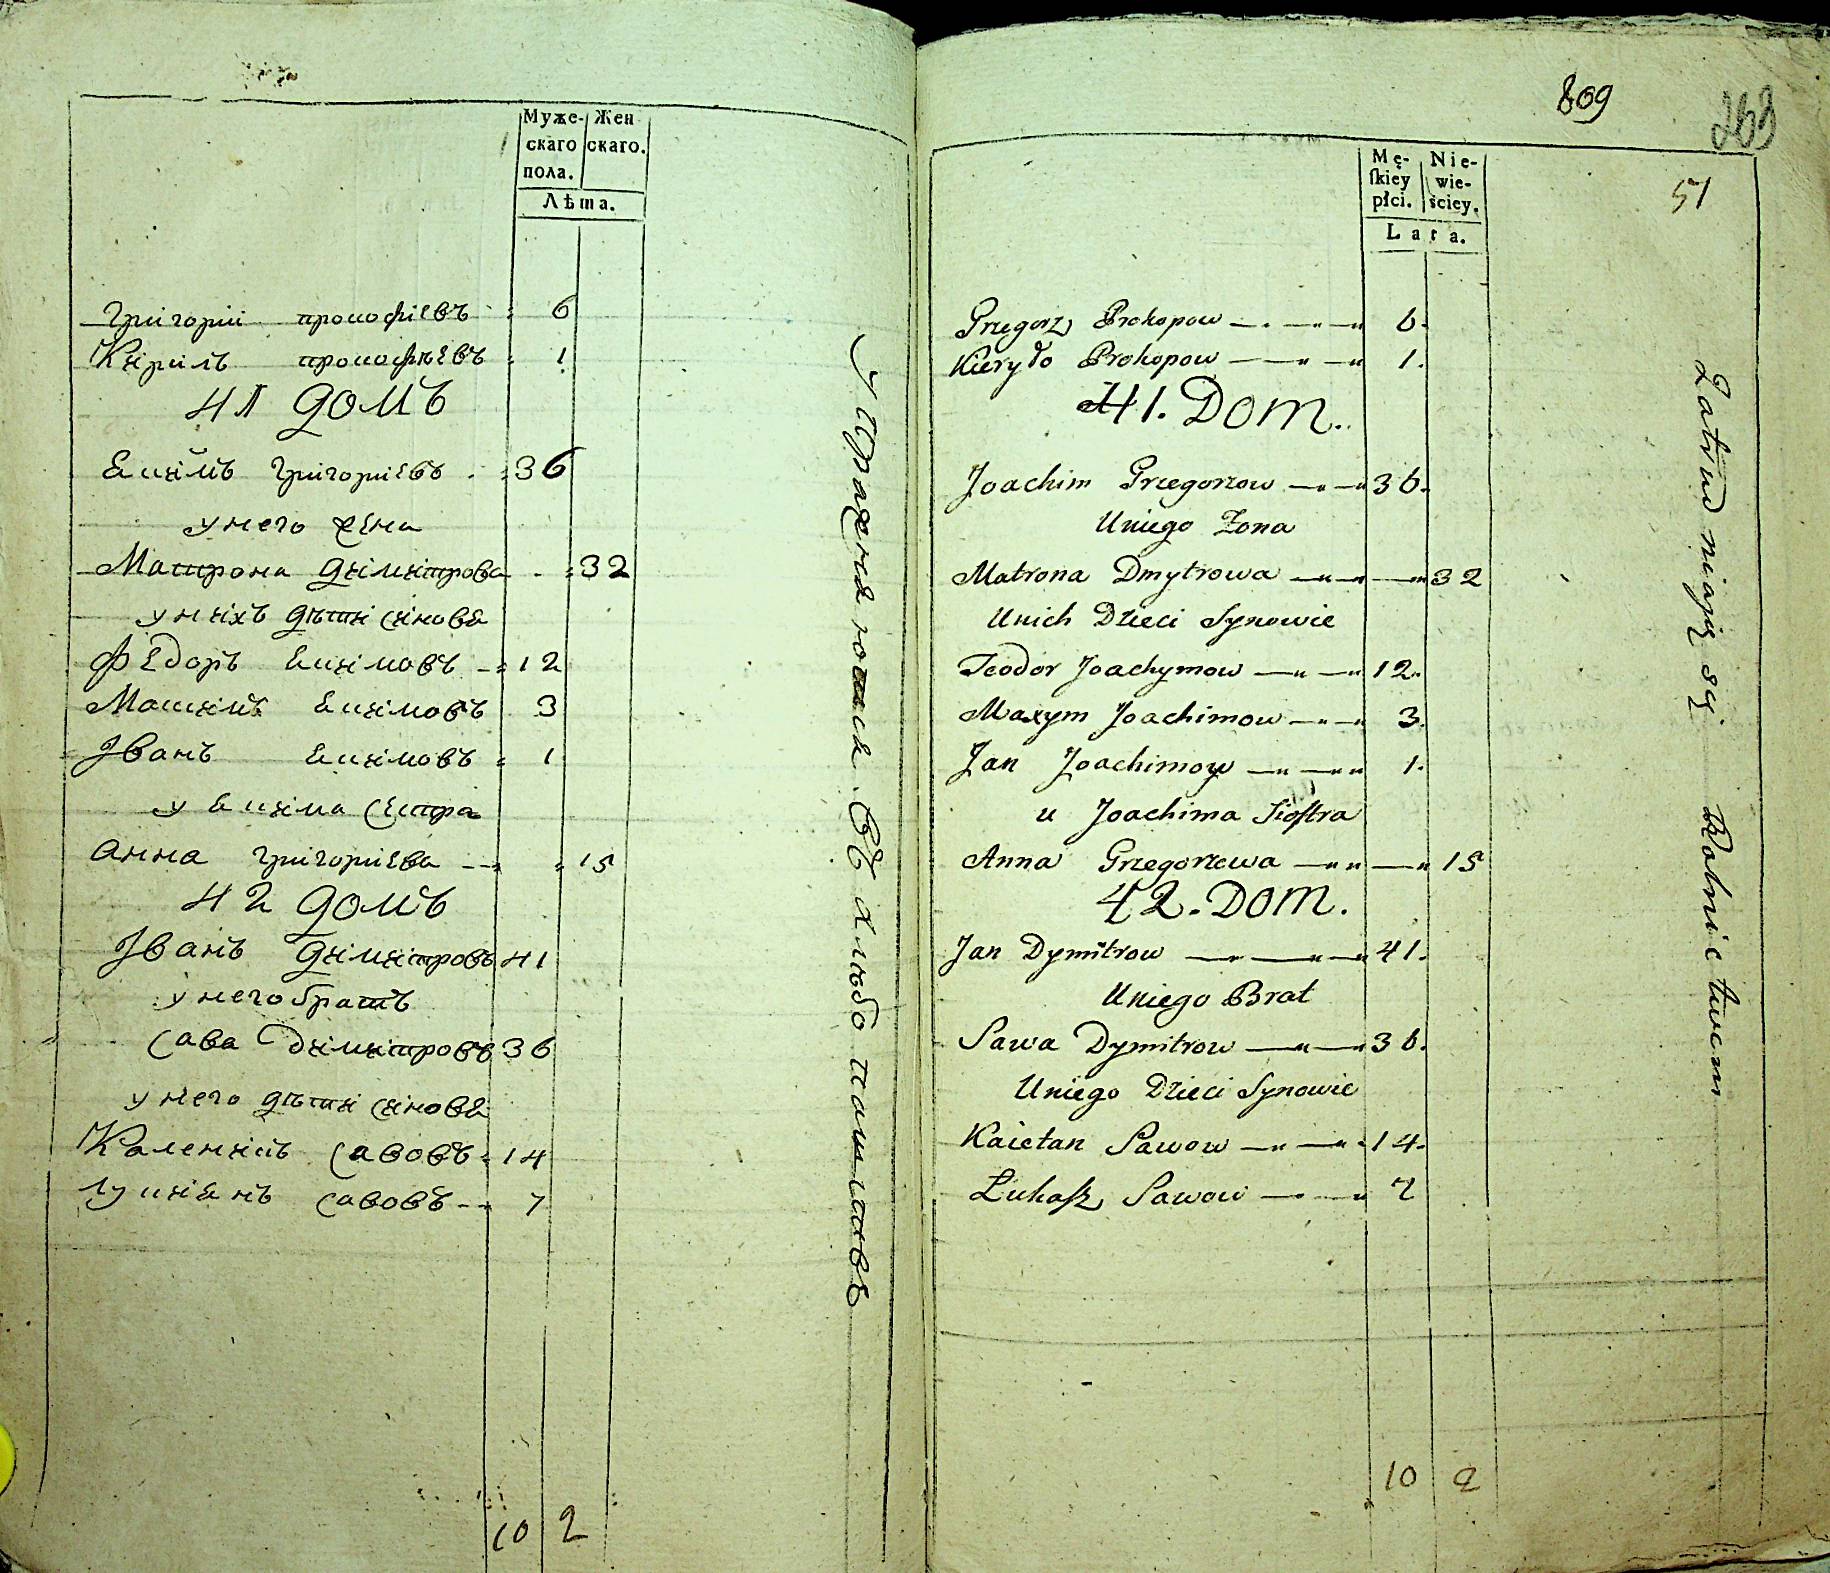 Муже- Жен
скаго скаго.
пола.
Лѣта.
Григории прокофиевъ 6
Кирилъ прокофиевъ 1
41 домъ
Екимъ григориевъ 36
у него жена
Матрона димитрова 32
у нихъ дѣти синовя
Федоръ Екимовъ 12
Максимъ Екимовъ 3
Іванъ Екимовъ 1
у Екима сестра
анна григориева 15
42 домъ
Іванъ димитровъ 41
у него братъ
сава димитровъ 36
у него дѣти синовя
савовъ 14
Лукиянъ савовъ 7
10 2
Упражняются въ хлебопашествѣ
809
263
51
Mę- Nie-
ſkiey wie-
płci. ściey.
Lata.
Grzegorz Prokopow 6.
Kieryło Prokopow 1.
41. Dom.
Joachim Grzegorzow 36.
Uniego Żona
Matrona Dmytrowa 32
Unich Dzieci Synowie
Teodor Joachymow 12.
Maxym Joachimow 3.
Jan Joachimow 1.
u Joachima Sioſtra
Anna Grzegorzewa 15
42. Dom.
Jan Dymitrow 41.
Uniego Brat
Sawa Dymitrow 36.
Uniego Dzieci Synowie
Kaietan Sawow 14.
Łukaſz Sawow 7
10 2
Zatrudniają się Rolnictwem